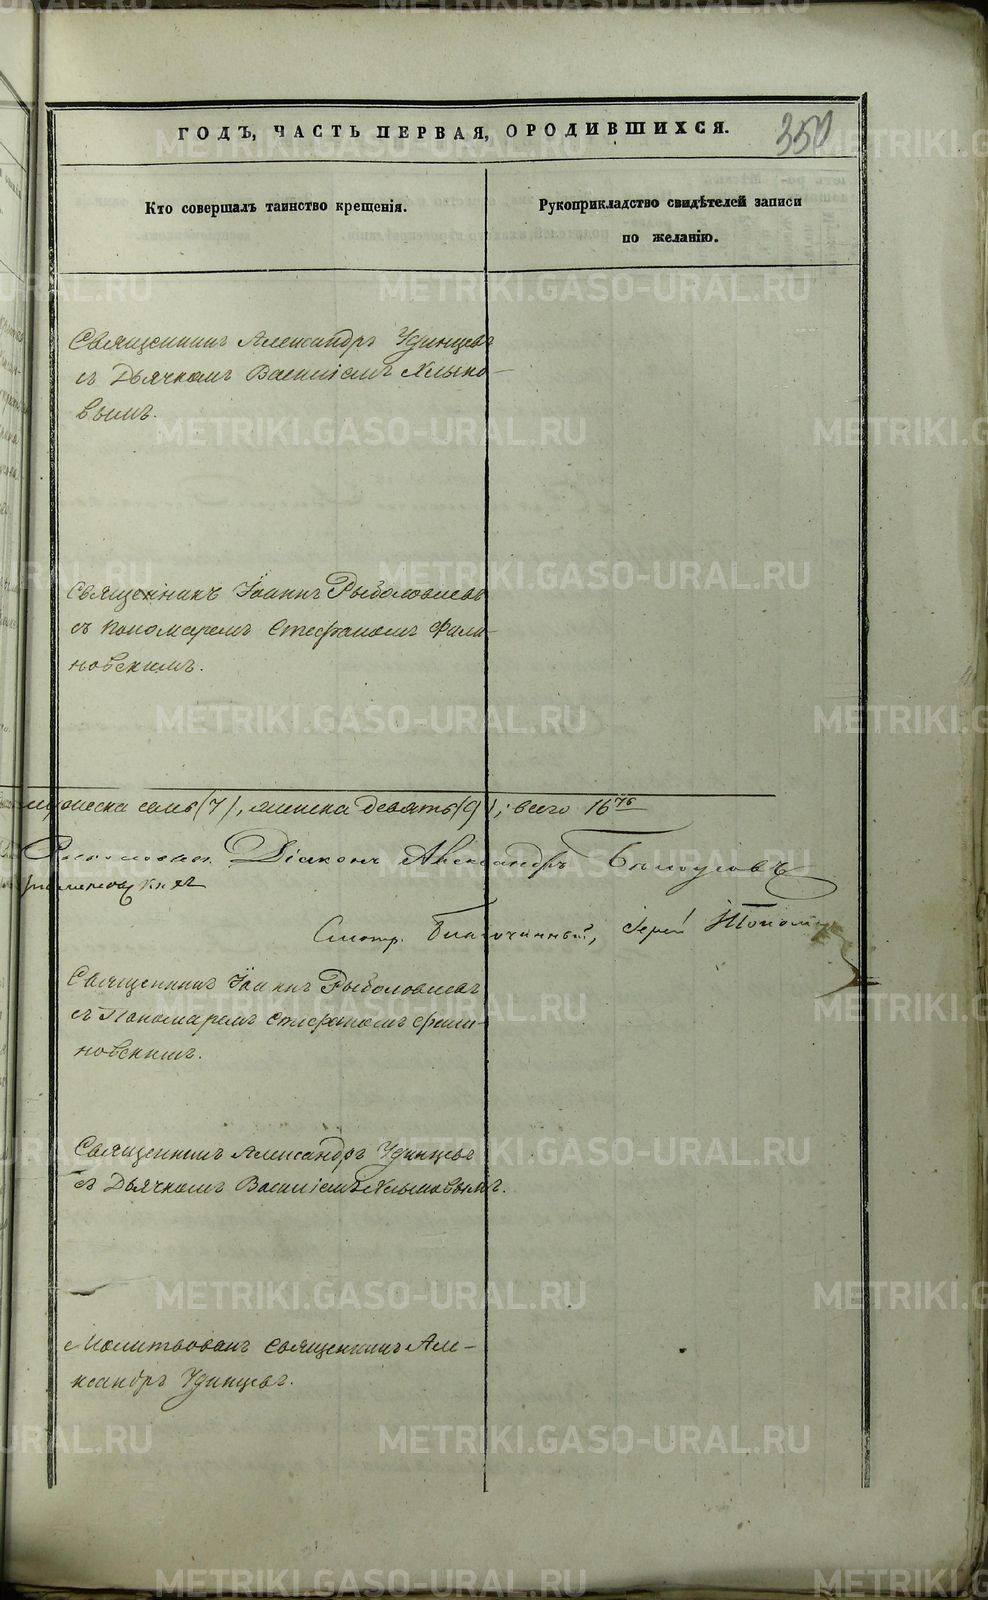 350
ГОДЪ, ЧАСТЬ ПЕРВАЯ, ОРОДИВШИХСЯ.
Кто совершалъ таинство крещенія.
Рукоприкладство свидѣтелей записи
по желанію.
Священникъ Александръ Удинцевъ
съ Дьячкомъ Василіемъ Хлыно-
вымъ.
Священникъ Іоаннъ Рыболовлевъ
съ Пономаремъ Стефаномъ Фили-
новскимъ.
мужеска семь (7), женска девять (9); всего 16
Діаконъ Александръ
Смотр. Благочинный, Іерей
Священникъ Іоаннъ Рыболовлевъ
съ Пономаремъ Стефаномъ Фили-
новскимъ.
Священникъ Александръ Удинцевъ
съ Дьячкомъ Василіемъ Хлыновымъ.
Молитвовалъ Священникъ Але-
ксандръ Удинцевъ.
METRIKI.GASO-URAL.RU